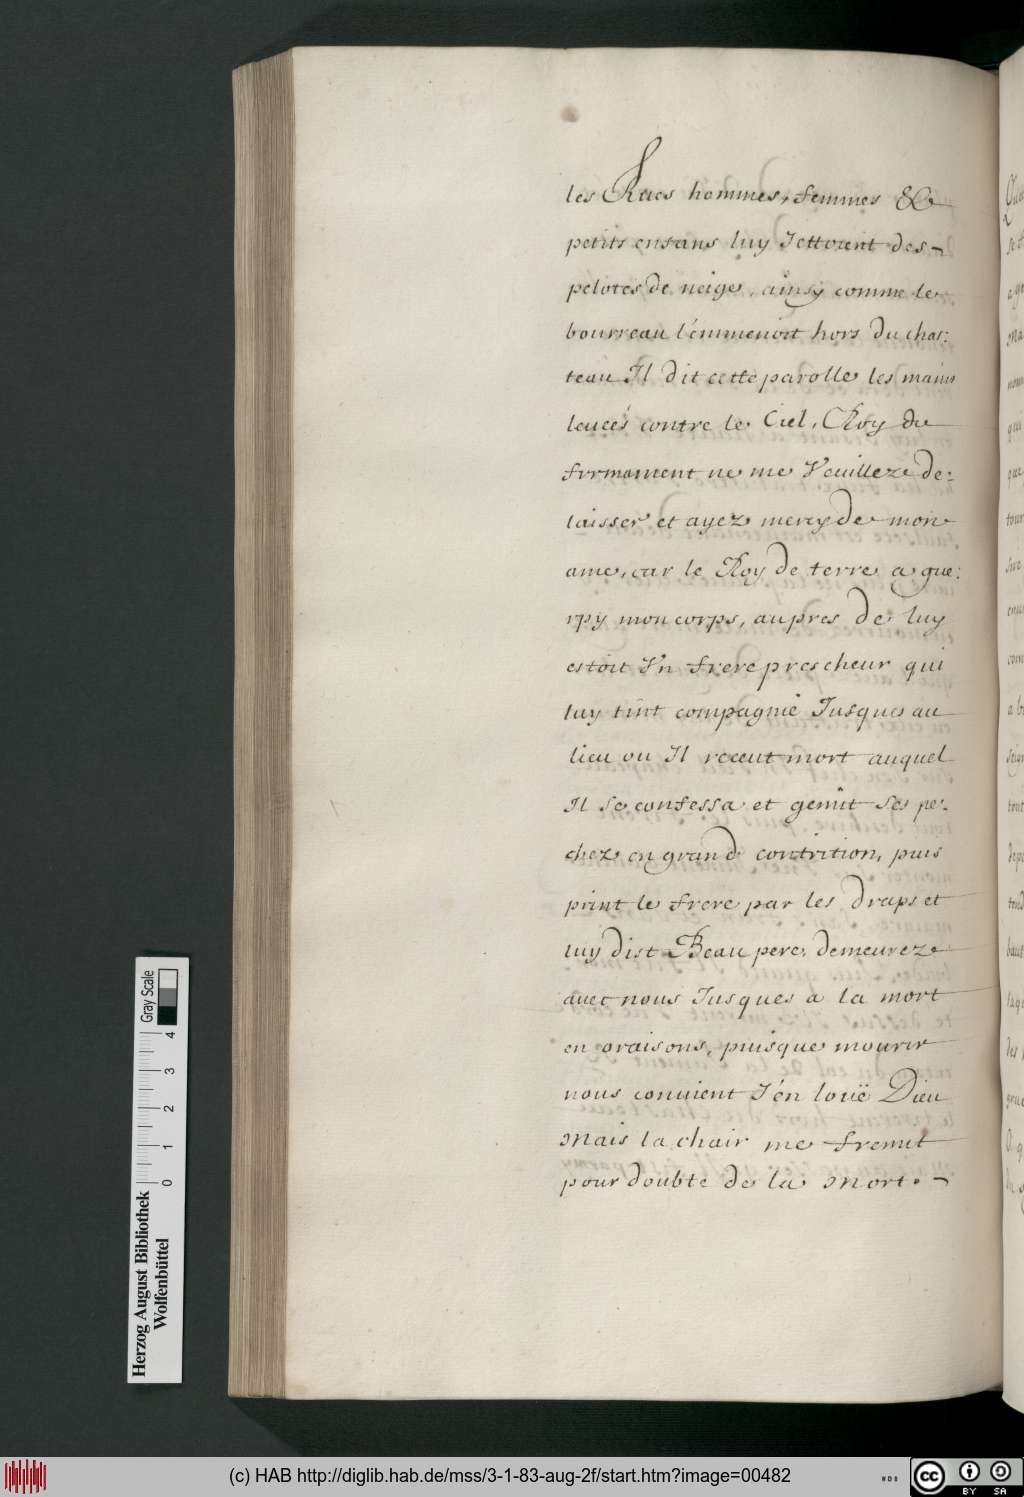 les Rues hommes, femmes &
petits enfans luy Jettoient des¬
pelotes de neige, ainsy comme le
bourreau l'emmenoit hors du chas:
teau Il dit cette parolle les mains
leueés contre le Ciel, Roy du
firmament ne me Veuillez de:
laisser et ayez mercy de mon
ame, car le Roy de terre a gue:
rpy mon corps, aupres de luy
estoit Vn frere prescheur qui
luy tint compagnie Jusques au
lieu ou Il receut mort auquel
Il se confessa et gemit ses pe:
chez en grand contrition, puis
print le frere par les draps et
luy dist Beau pere, demeurez
auec nous Jusques a la mort
en oraisons, puisque mourir
nous conuient J'en louë Dieu
Mais la chair me fremit
pour doubte de la Mort.¬
Herzog August Bibliothek
Wolfenbüttel
0 1 2 3 4
Gray Scale
(c) HAB http://diglib.hab.de/mss/3-1-83-aug-2f/start.htm?image=00482
WDB
cc BY SA